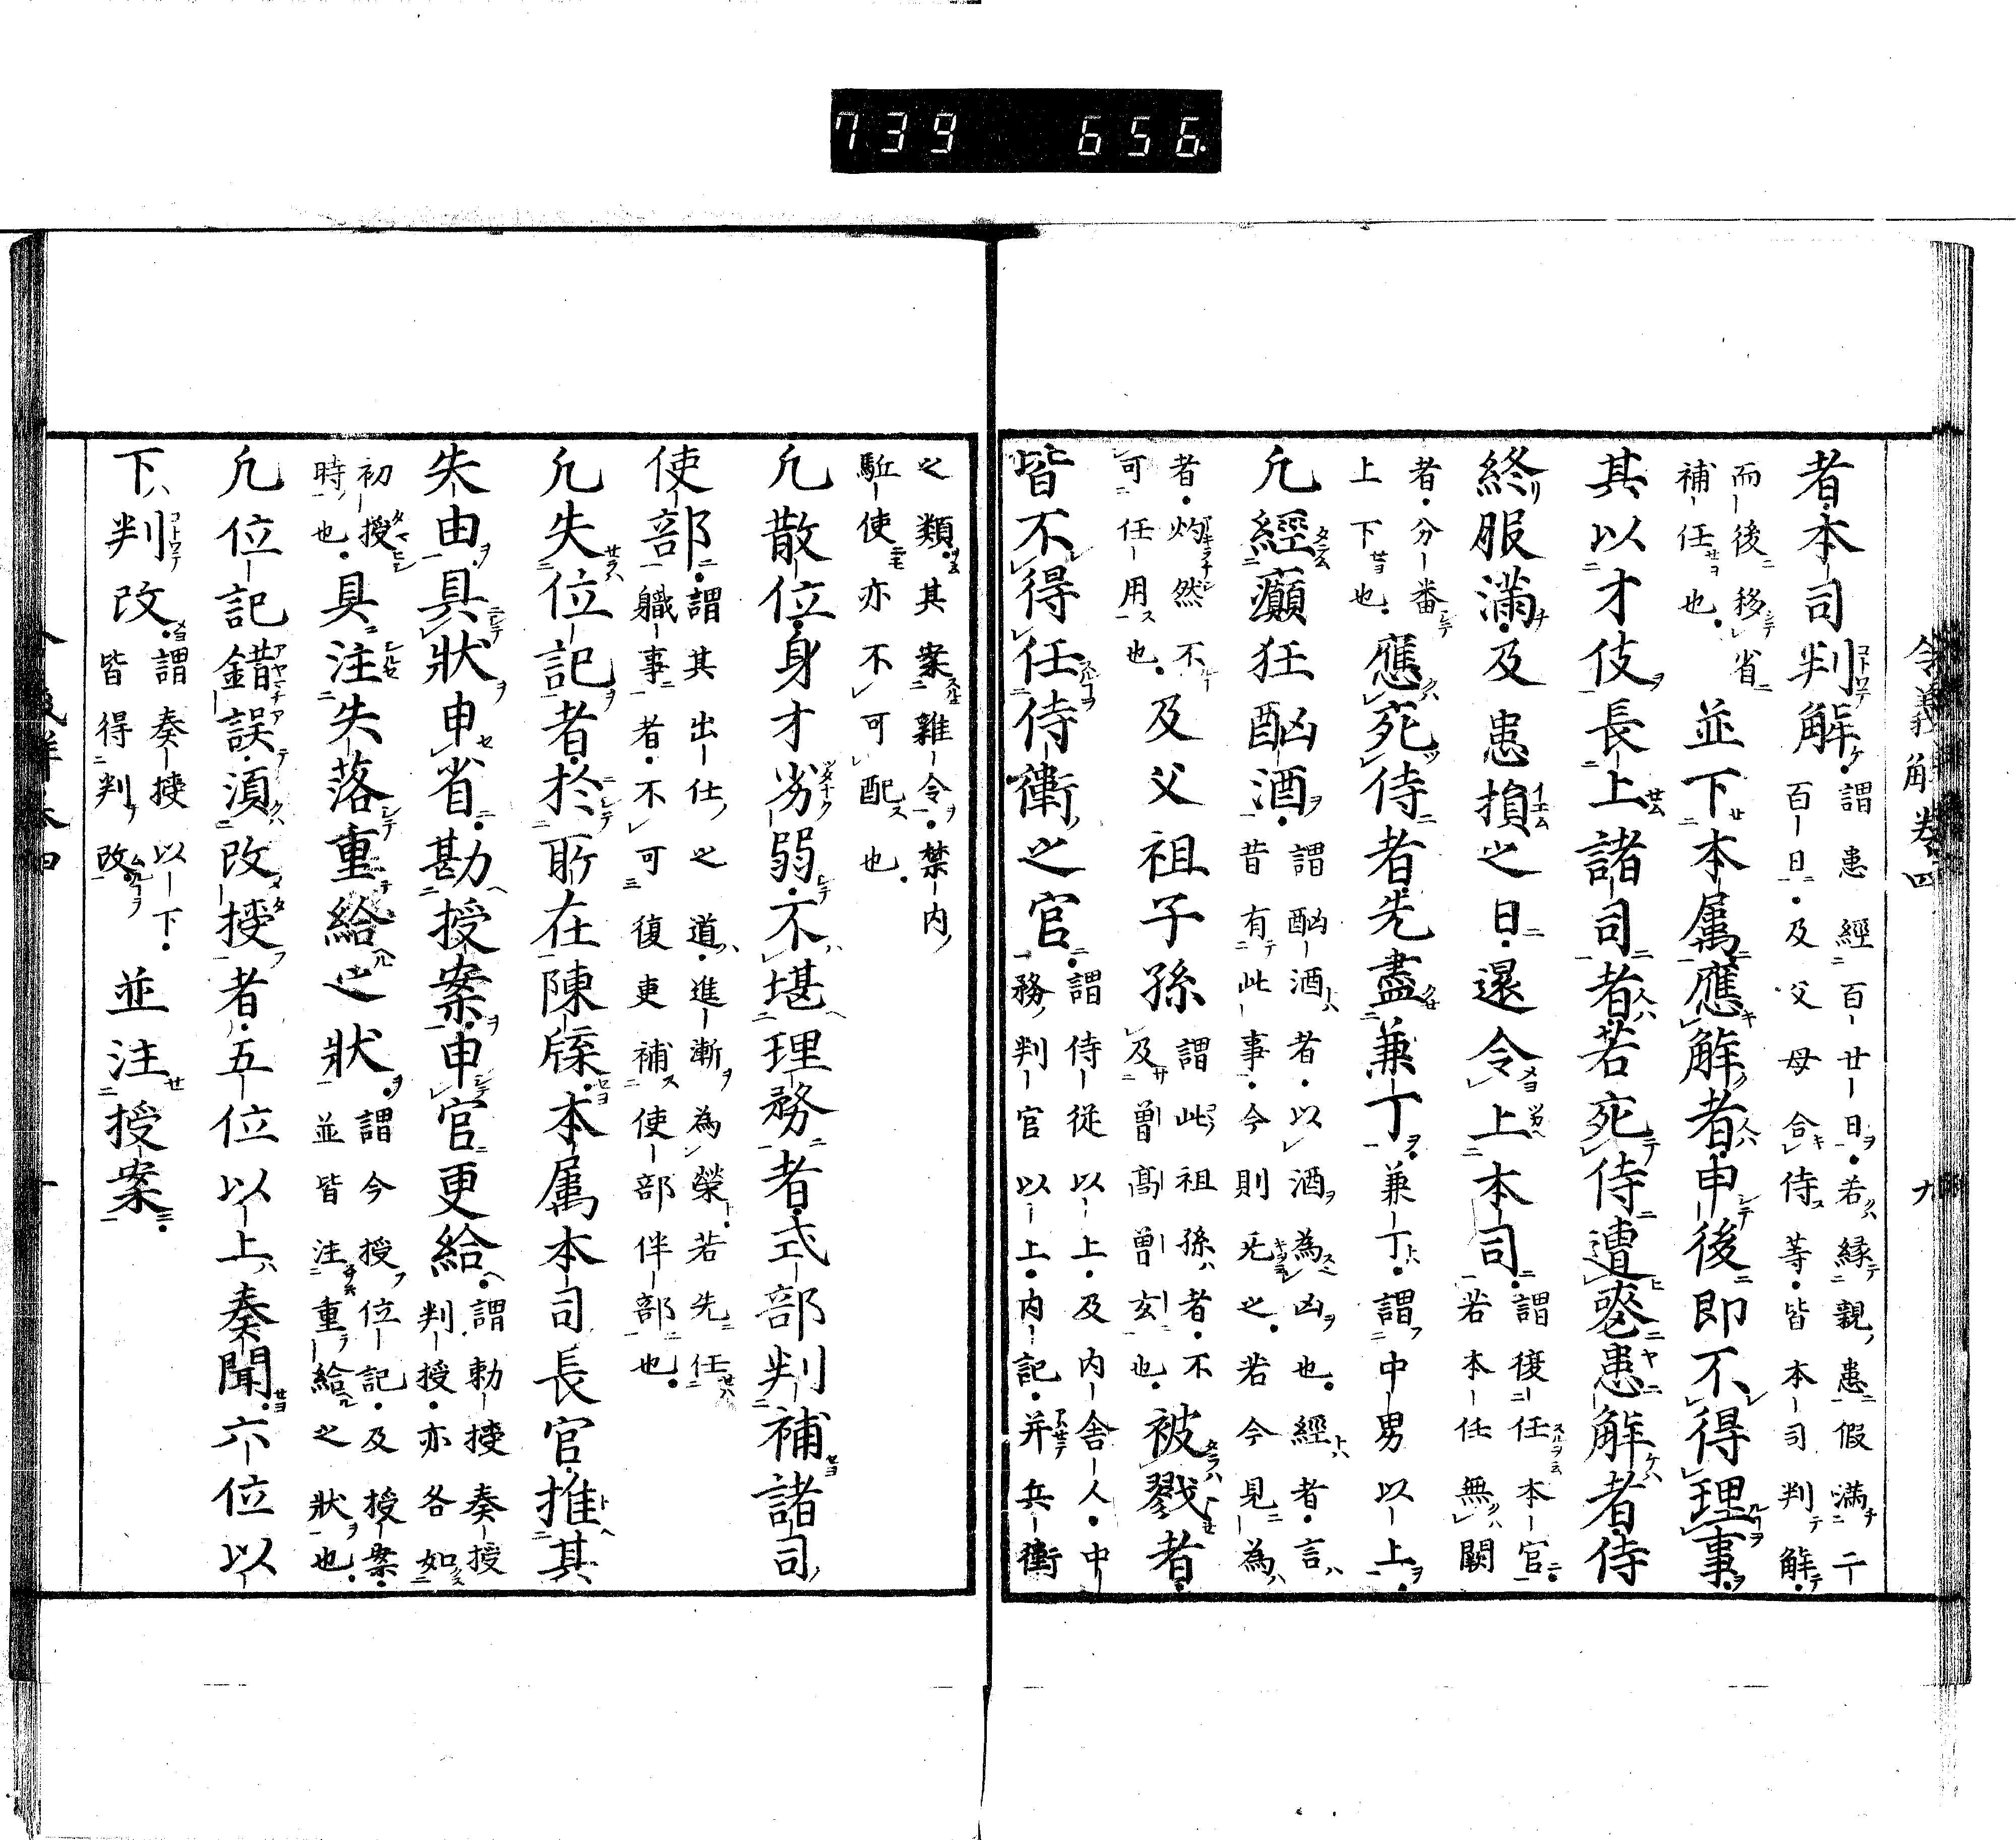 739 656
令義解卷四 九
者本司判解謂患經百廿日若縁親患假滿二
百日及父母合侍等皆本司判解
而後移省
補任也並下本属應解者申後即不得理事
其以才伎長上諸司者若死侍遭喪患解者侍
終服滿及患損之日還令上本司謂復任本官
若本任無闕
者分番
上下也應死侍者先盡兼丁兼丁謂中男以上
凢經癲狂酗酒謂酗酒者以酒為凶也經者言
昔有此事今則死之若今見為
者灼然不
可任用也及父祖子孫謂此祖孫者不
及曽高曽玄也被戮者
皆不得任侍衛之官謂侍従以上及内舎人中
務判官以上内記并兵衛
之類其案雜令禁内
駈使亦不可配也
凢散位身才劣弱不堪理務者式部判補諸司
使部謂其出仕之道進漸為榮若先任
職事者不可復更補使部伴部也
凢失位記者於所在陳牒本属本司長官推其
失由具狀申省勘授案申官更給謂勅授奏授
判授亦各如
初授
時也具注失落重給之狀謂今授位記及授案
並皆注重給之狀也
凢位記錯誤須改授者五位以上奏聞六位以
下判改謂奏授以下
皆得判改並注授案